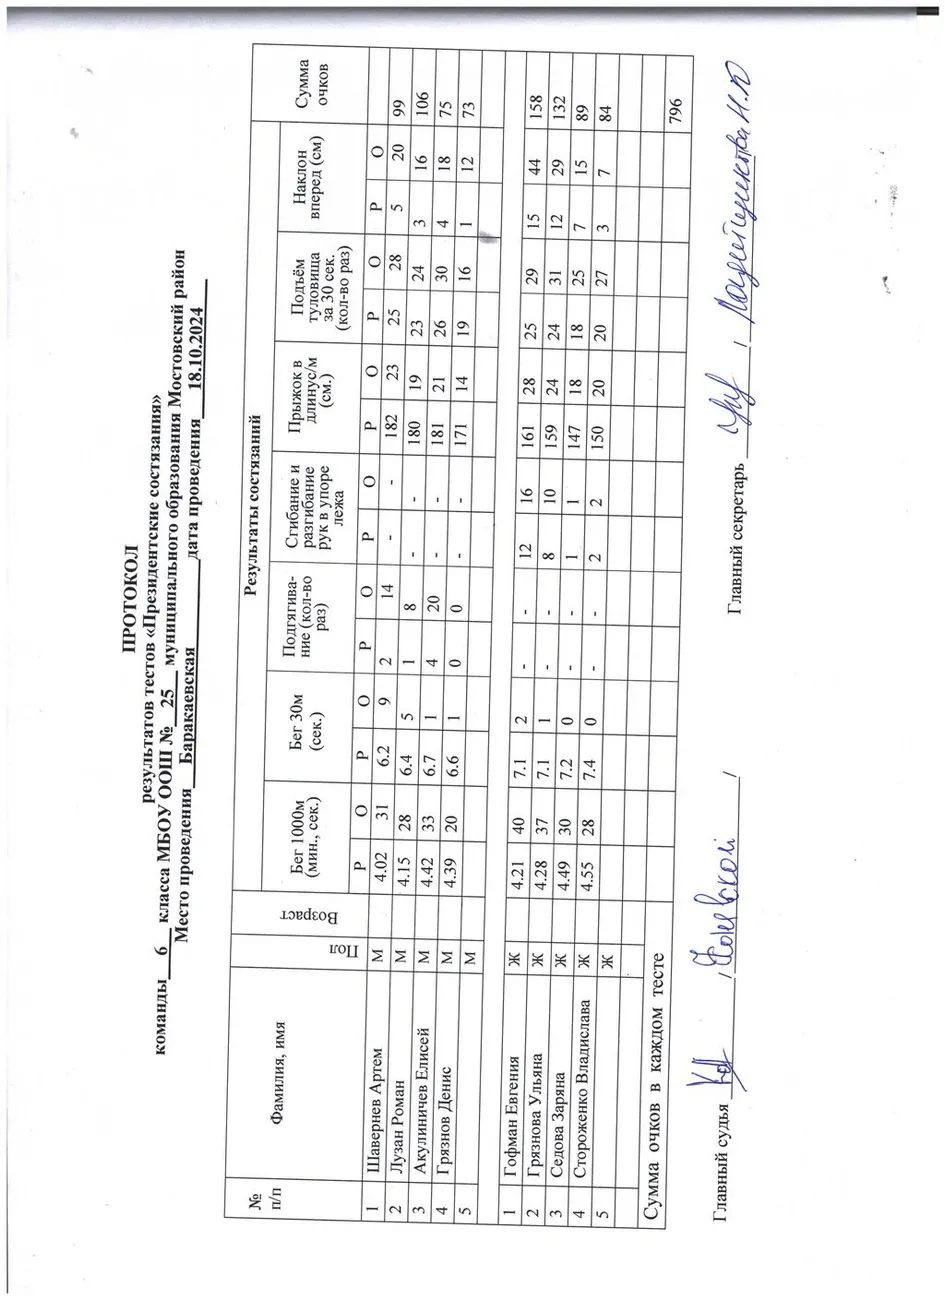 ПРОТОКОЛ
результатов тестов «Президентские состязания»
команды 6 класса МБОУ ООШ № 25 муниципального образования Мостовский район
Место проведения Баракаевская дата проведения 18.10.2024
№ п/п Фамилия, имя Пол Возраст Результаты состязаний Сумма очков
Бег 1000м (мин., сек.) Бег 30м (сек.) Подтягива-ние (кол-во раз) Сгибание и разгибание рук в упоре лежа Прыжок в длинус/м (см.) Подъём туловища за 30 сек. (кол-во раз) Наклон вперед (см)
Р О Р О Р О Р О Р О Р О Р О
1 Шавернев Артем М 4.02 31 6.2 9 2 14 - - 182 23 25 28 5 20 99
2 Лузан Роман М 4.15 28 6.4 5 1 8 - - 180 19 23 24 3 16 106
3 Акулиничев Елисей М 4.42 33 6.7 1 4 20 - - 181 21 26 30 4 18 75
4 Грязнов Денис М 4.39 20 6.6 1 0 0 - - 171 14 19 16 1 12 73
5 М
1 Гофман Евгения Ж 4.21 40 7.1 2 - - 12 16 161 28 25 29 15 44 158
2 Грязнова Ульяна Ж 4.28 37 7.1 1 - - 8 10 159 24 24 31 12 29 132
3 Седова Заряна Ж 4.49 30 7.2 0 - - 1 1 147 18 18 25 7 15 89
4 Стороженко Владислава Ж 4.55 28 7.4 0 - - 2 2 150 20 20 27 3 7 84
5 Ж
Сумма очков в каждом тесте 796
Главный судья / / Главный секретарь / /